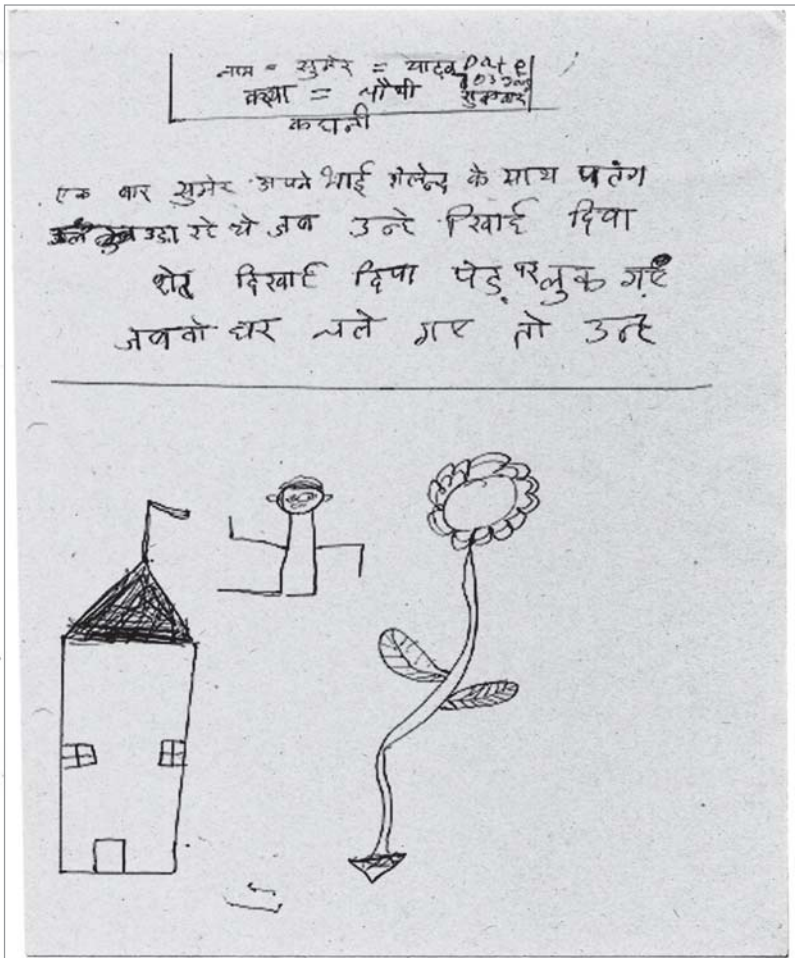 नाम = सुमेर = यादव Date
कक्षा = चौथी शुक्रवार
कहानी
एक बार सुमेर अपने भाई शैलेन्द्र के साथ पतंग
उडा रहे थे जब उन्हे दिखाई दिया
शेर दिखाई दिया पेड़ पर लुक गए
जब वो घर चले गए तो उन्हे